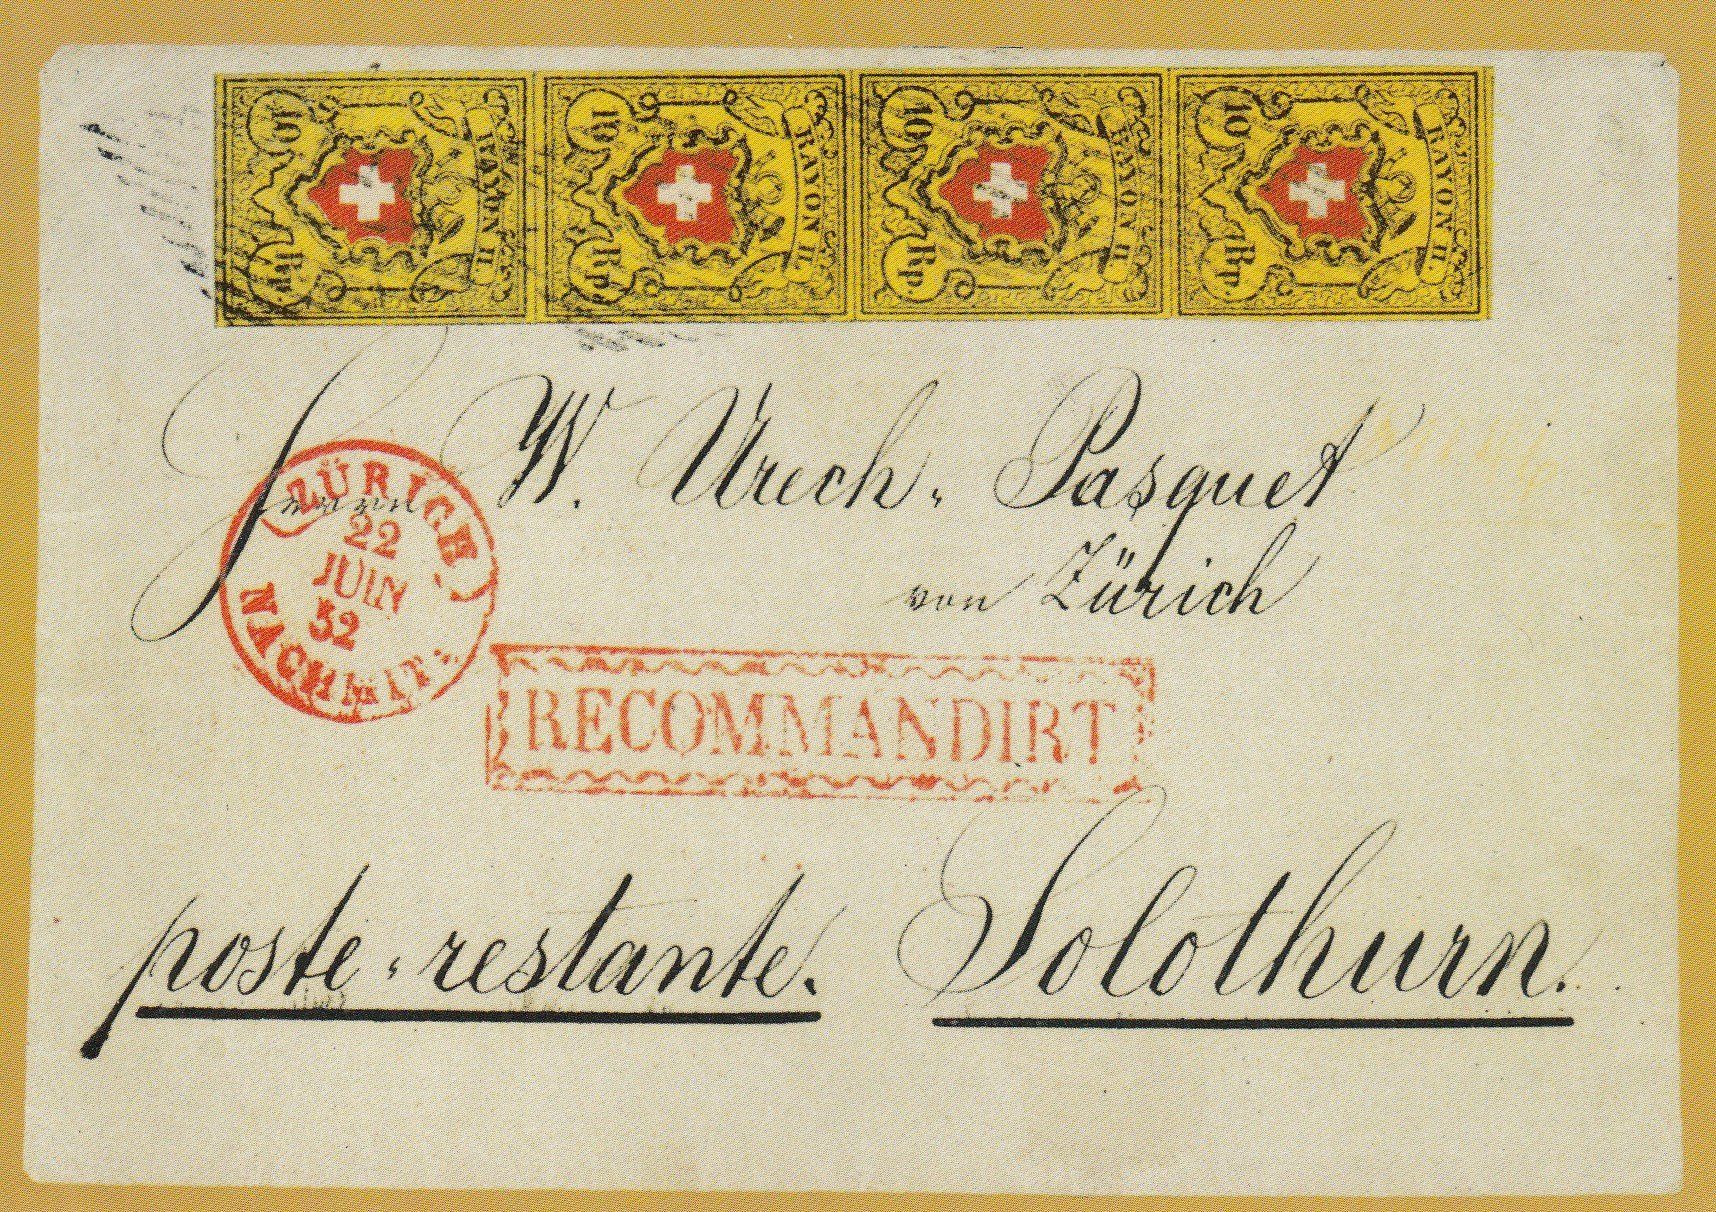 10 RAYON II. Rp.
10 RAYON II. Rp.
10 RAYON II. Rp.
10 RAYON II. Rp.
Herrn W. Urech-Pasquet
von Zürich
ZÜRICH
22
JUIN
52
NACHMIT:
RECOMMANDIRT
poste-restante. Solothurn.